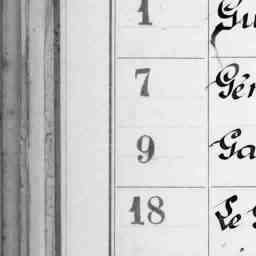 1 Gu
7 Gér
9 Ga
18 Le G